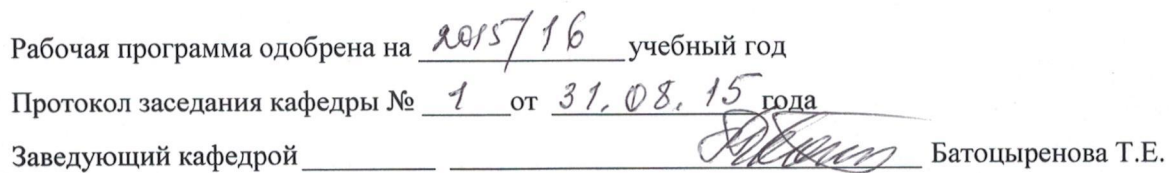 Рабочая программа одобрена на 2015/16 учебный год
Протокол заседания кафедры № 1 от 31.08.15 года
Заведующий кафедрой Батоцыренова Т.Е.